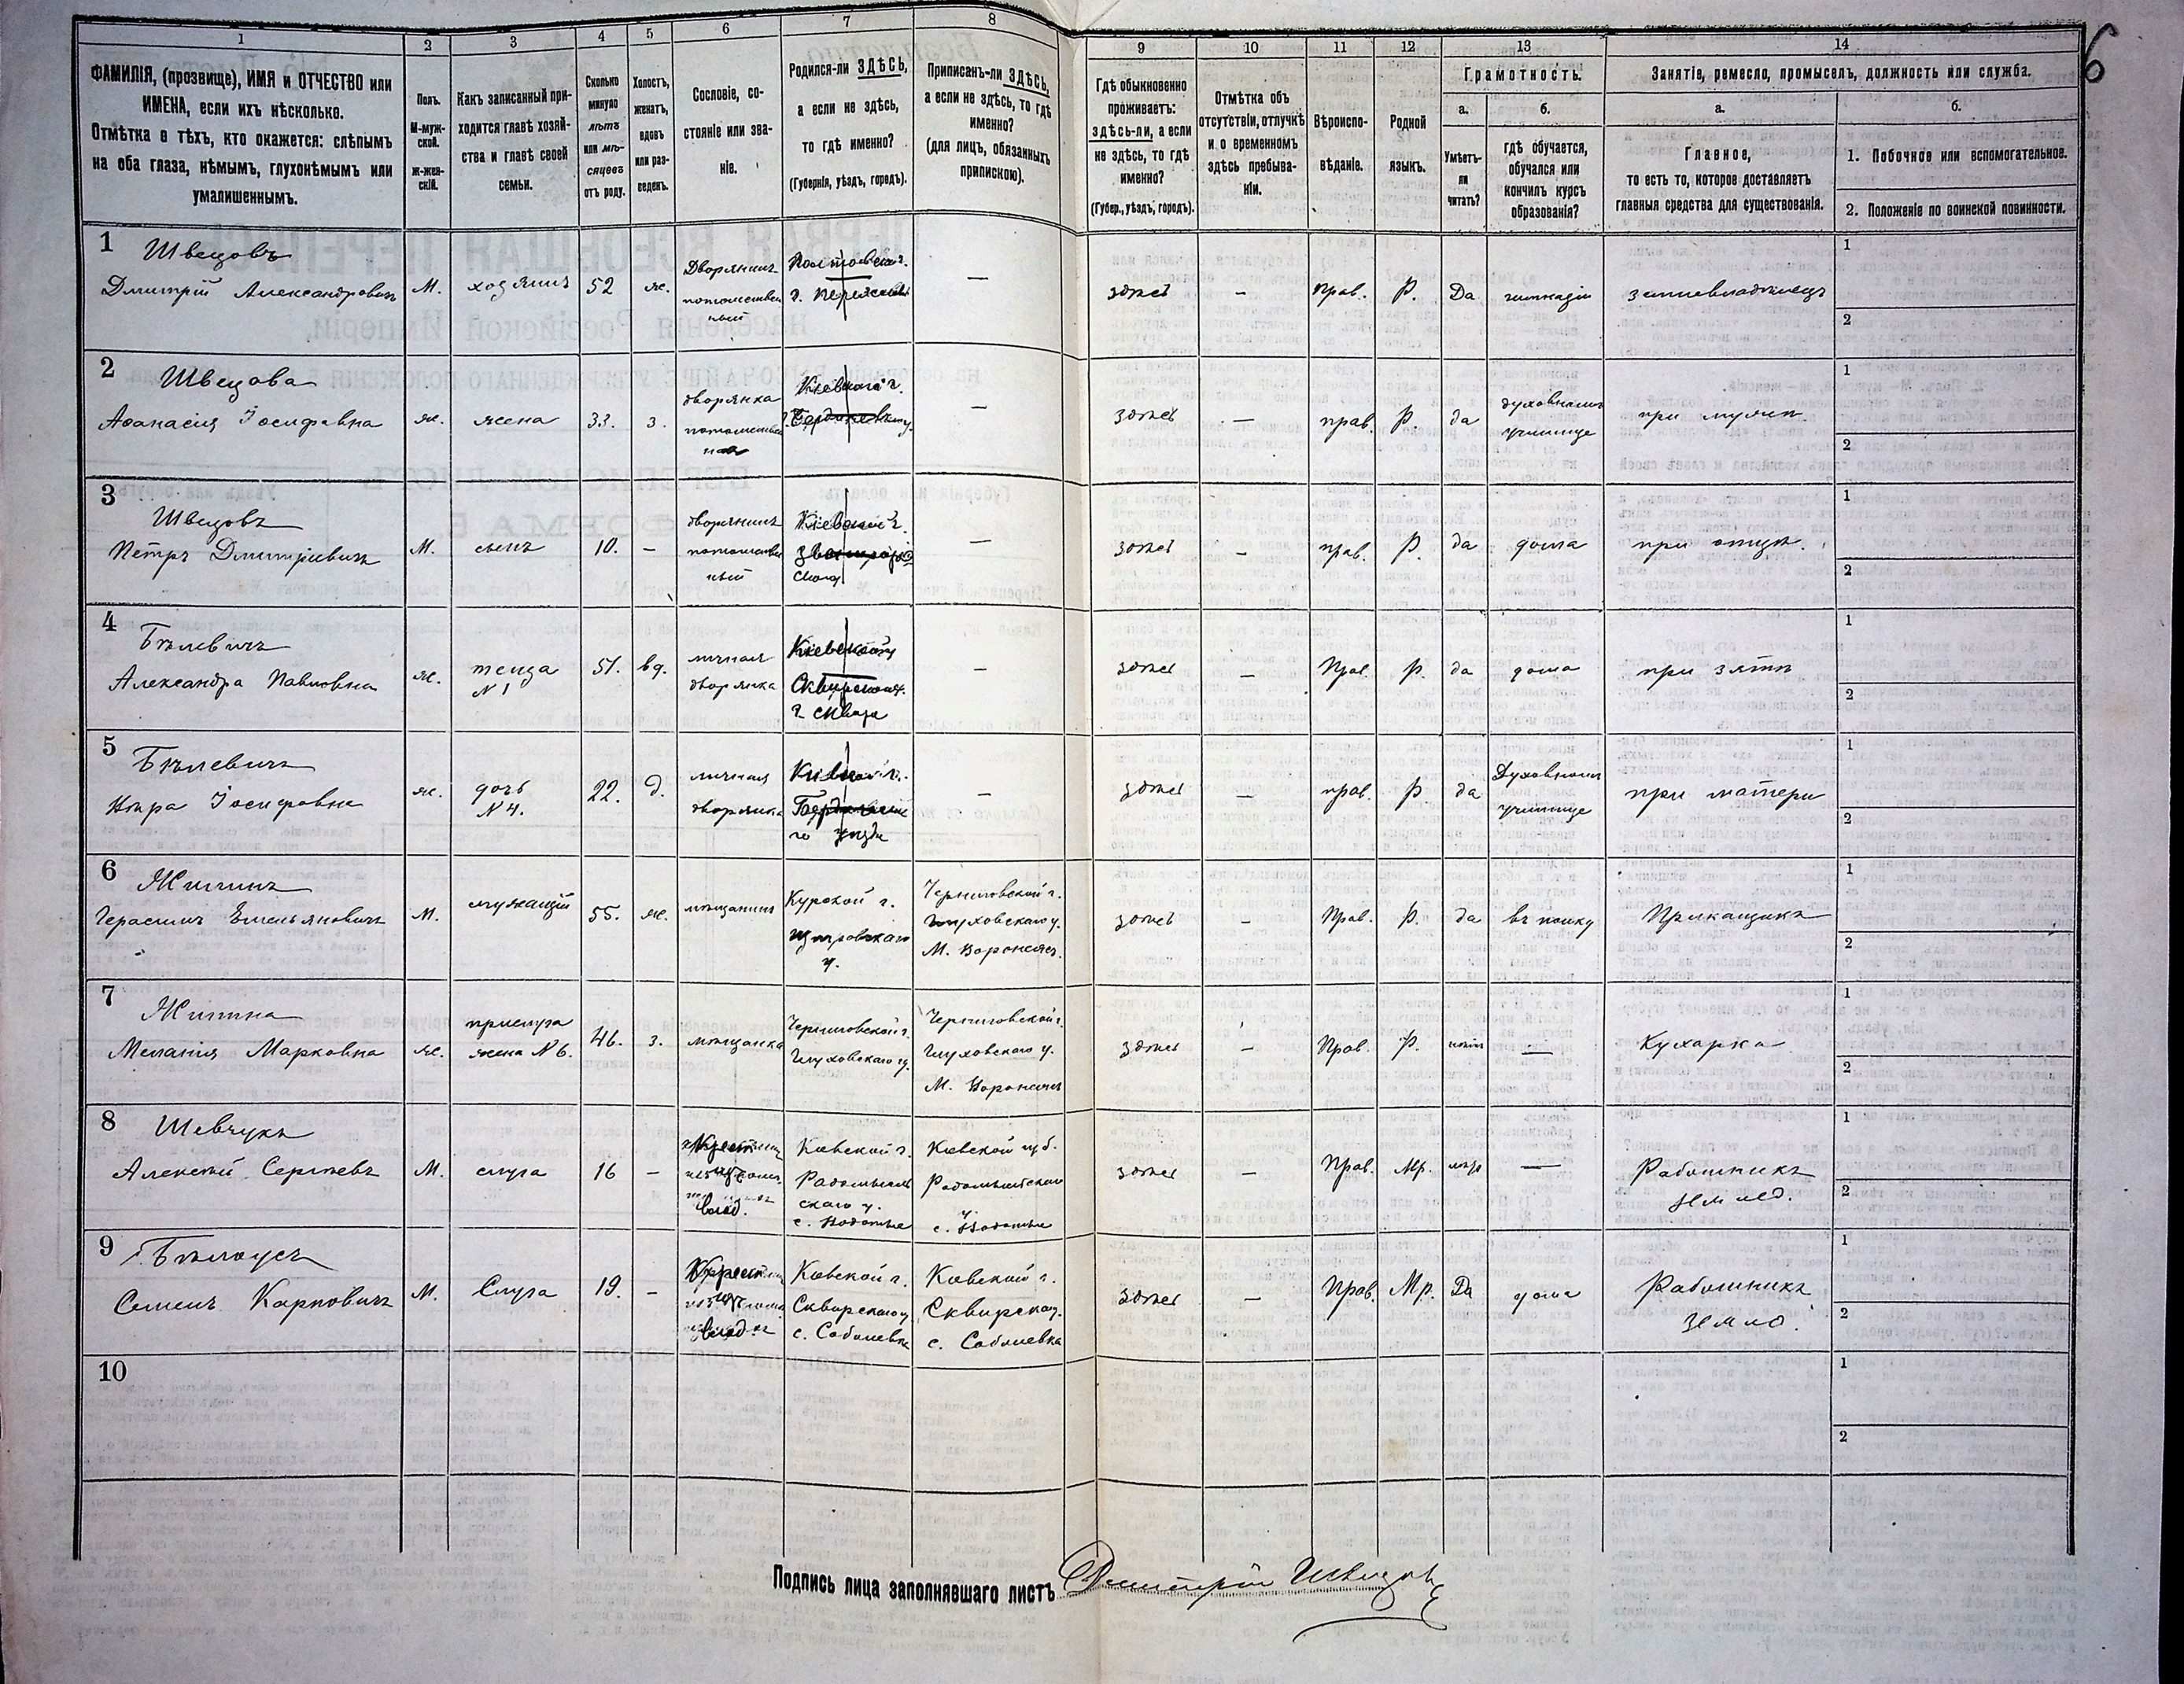 6
1
2
3
4
5
6
7
8
9
10
11
12
13
14
ФАМИЛІЯ, (прозвище), ИМЯ и ОТЧЕСТВО или
ИМЕНА, если ихъ нѣсколько.
Отмѣтка о тѣхъ, кто окажется: слѣпымъ
на оба глаза, нѣмымъ, глухонѣмымъ или
умалишеннымъ.
Полъ.
М-муж-
ской.
Ж-жен-
скій.
Какъ записанный при-
ходится главѣ хозяй-
ства и главѣ своей
семьи.
Сколько
минуло
лѣтъ
или мѣ-
сяцевъ
отъ роду.
Холостъ,
женатъ,
вдовъ
или раз-
веденъ.
Сословіе, со-
стояніе или зва-
ніе.
Родился-ли ЗДѢСЬ,
а если не здѣсь,
то гдѣ именно?
(Губернія, уѣздъ, городъ).
Приписанъ-ли ЗДѢСЬ,
а если не здѣсь, то гдѣ
именно?
(для лицъ, обязанныхъ
припискою).
Гдѣ обыкновенно
проживаетъ:
здѣсь-ли, а если
не здѣсь, то гдѣ
именно?
(Губер., уѣздъ, городъ).
Отмѣтка объ
отсутствіи, отлучкѣ
и о временномъ
здѣсь пребыва-
ніи.
Вѣроиспо-
вѣданіе.
Родной
языкъ.
Грамотность.
а.
б.
Умѣетъ-
ли
читать?
гдѣ обучается,
обучался или
кончилъ курсъ
образованія?
Занятіе, ремесло, промыселъ, должность или служба.
а.
б.
Главное,
то есть то, которое доставляетъ
главныя средства для существованія.
1. Побочное или вспомогательное.
2. Положеніе по воинской повинности.
1
Швецовъ
Дмитрій Александровичъ
М.
хозяинъ
52
ж.
Дворянинъ
потомствен
ный
Полтавской г.
—
здѣсь
—
Прав.
Р.
Да
гимназіи
землевладѣлецъ
1
2
2
Швецова
Афанасія Іосифовна
ж.
жена
33.
з.
дворянка
потомствен
ная
Кіевской г.
—
здѣсь
—
прав.
Р.
да
духовномъ
училище
при мужѣ
1
2
3
Швецовъ
Петръ Дмитріевичъ
М.
сынъ
10.
—
дворянинъ
потомствен
ный
Кіевской г.
—
здѣсь
—
прав.
Р.
да
дома
при отцѣ.
1
2
4
Бѣлевичъ
Александра Павловна
ж.
теща
N 1
51.
вд.
личная
дворянка
Кіевской г.
Сквирского у.
г. Сквира
—
здѣсь
—
Прав.
Р.
да
дома
при зятѣ
1
2
5
Бѣлевичъ
Іосифовна
ж.
дочь
N 4.
22.
д.
личная
дворянка
Кіевской г.
го уѣзда
—
здѣсь
—
прав.
Р.
да
Духовномъ
училище
при матери
1
2
6
Жилинъ
Герасимъ Емельяновичъ
М.
служащій
55.
ж.
мѣщанинъ
Курской г.
Щигровскаго
у.
Черниговской г.
Глуховскаго у.
М. Воронежъ.
здѣсь
—
Прав.
Р.
да
въ полку
Прикащикъ
1
2
7
Жилина
Меланія Марковна
ж.
прислуга
жена N 6.
46.
з.
мѣщанка
Черниговской г.
Глуховскаго у.
Черниговской г.
Глуховскаго у.
М. Воронежъ
здѣсь
—
Прав.
Р.
нѣтъ
—
Кухарка
1
2
8
Шевчукъ
Алексѣй Сергѣевъ
М.
слуга
16
—
Крест
Кіевской г.
Радомысль
скаго у.
Кіевской губ.
Радомысльскаго
у.
здѣсь
—
Прав.
Мр.
нѣтъ
—
Работникъ
землед.
1
2
9
Бѣлоусъ
Семенъ Карповичъ
М.
Слуга
19.
—
Крест
Кіевской г.
Сквирскаго у.
с. Соболевка
Кіевской г.
Сквирскаго у.
с. Соболевка
здѣсь
—
Прав.
Мр.
Да
дома
Работникъ
землед.
1
2
10
1
2
Подпись лица заполнявшаго листъ Дмитрій Швецовъ